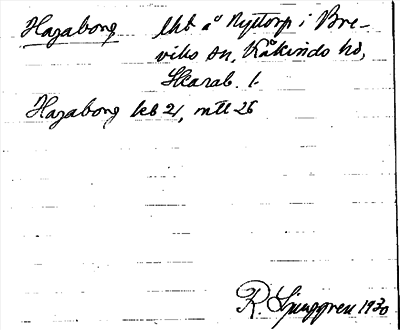 Hagaborg lht å Nyttorp i Bre-
viks sn, Kåkinds hd,
Skarab. l.
Hagaborg kb 21, mtl 26
R. Ljunggren 1930